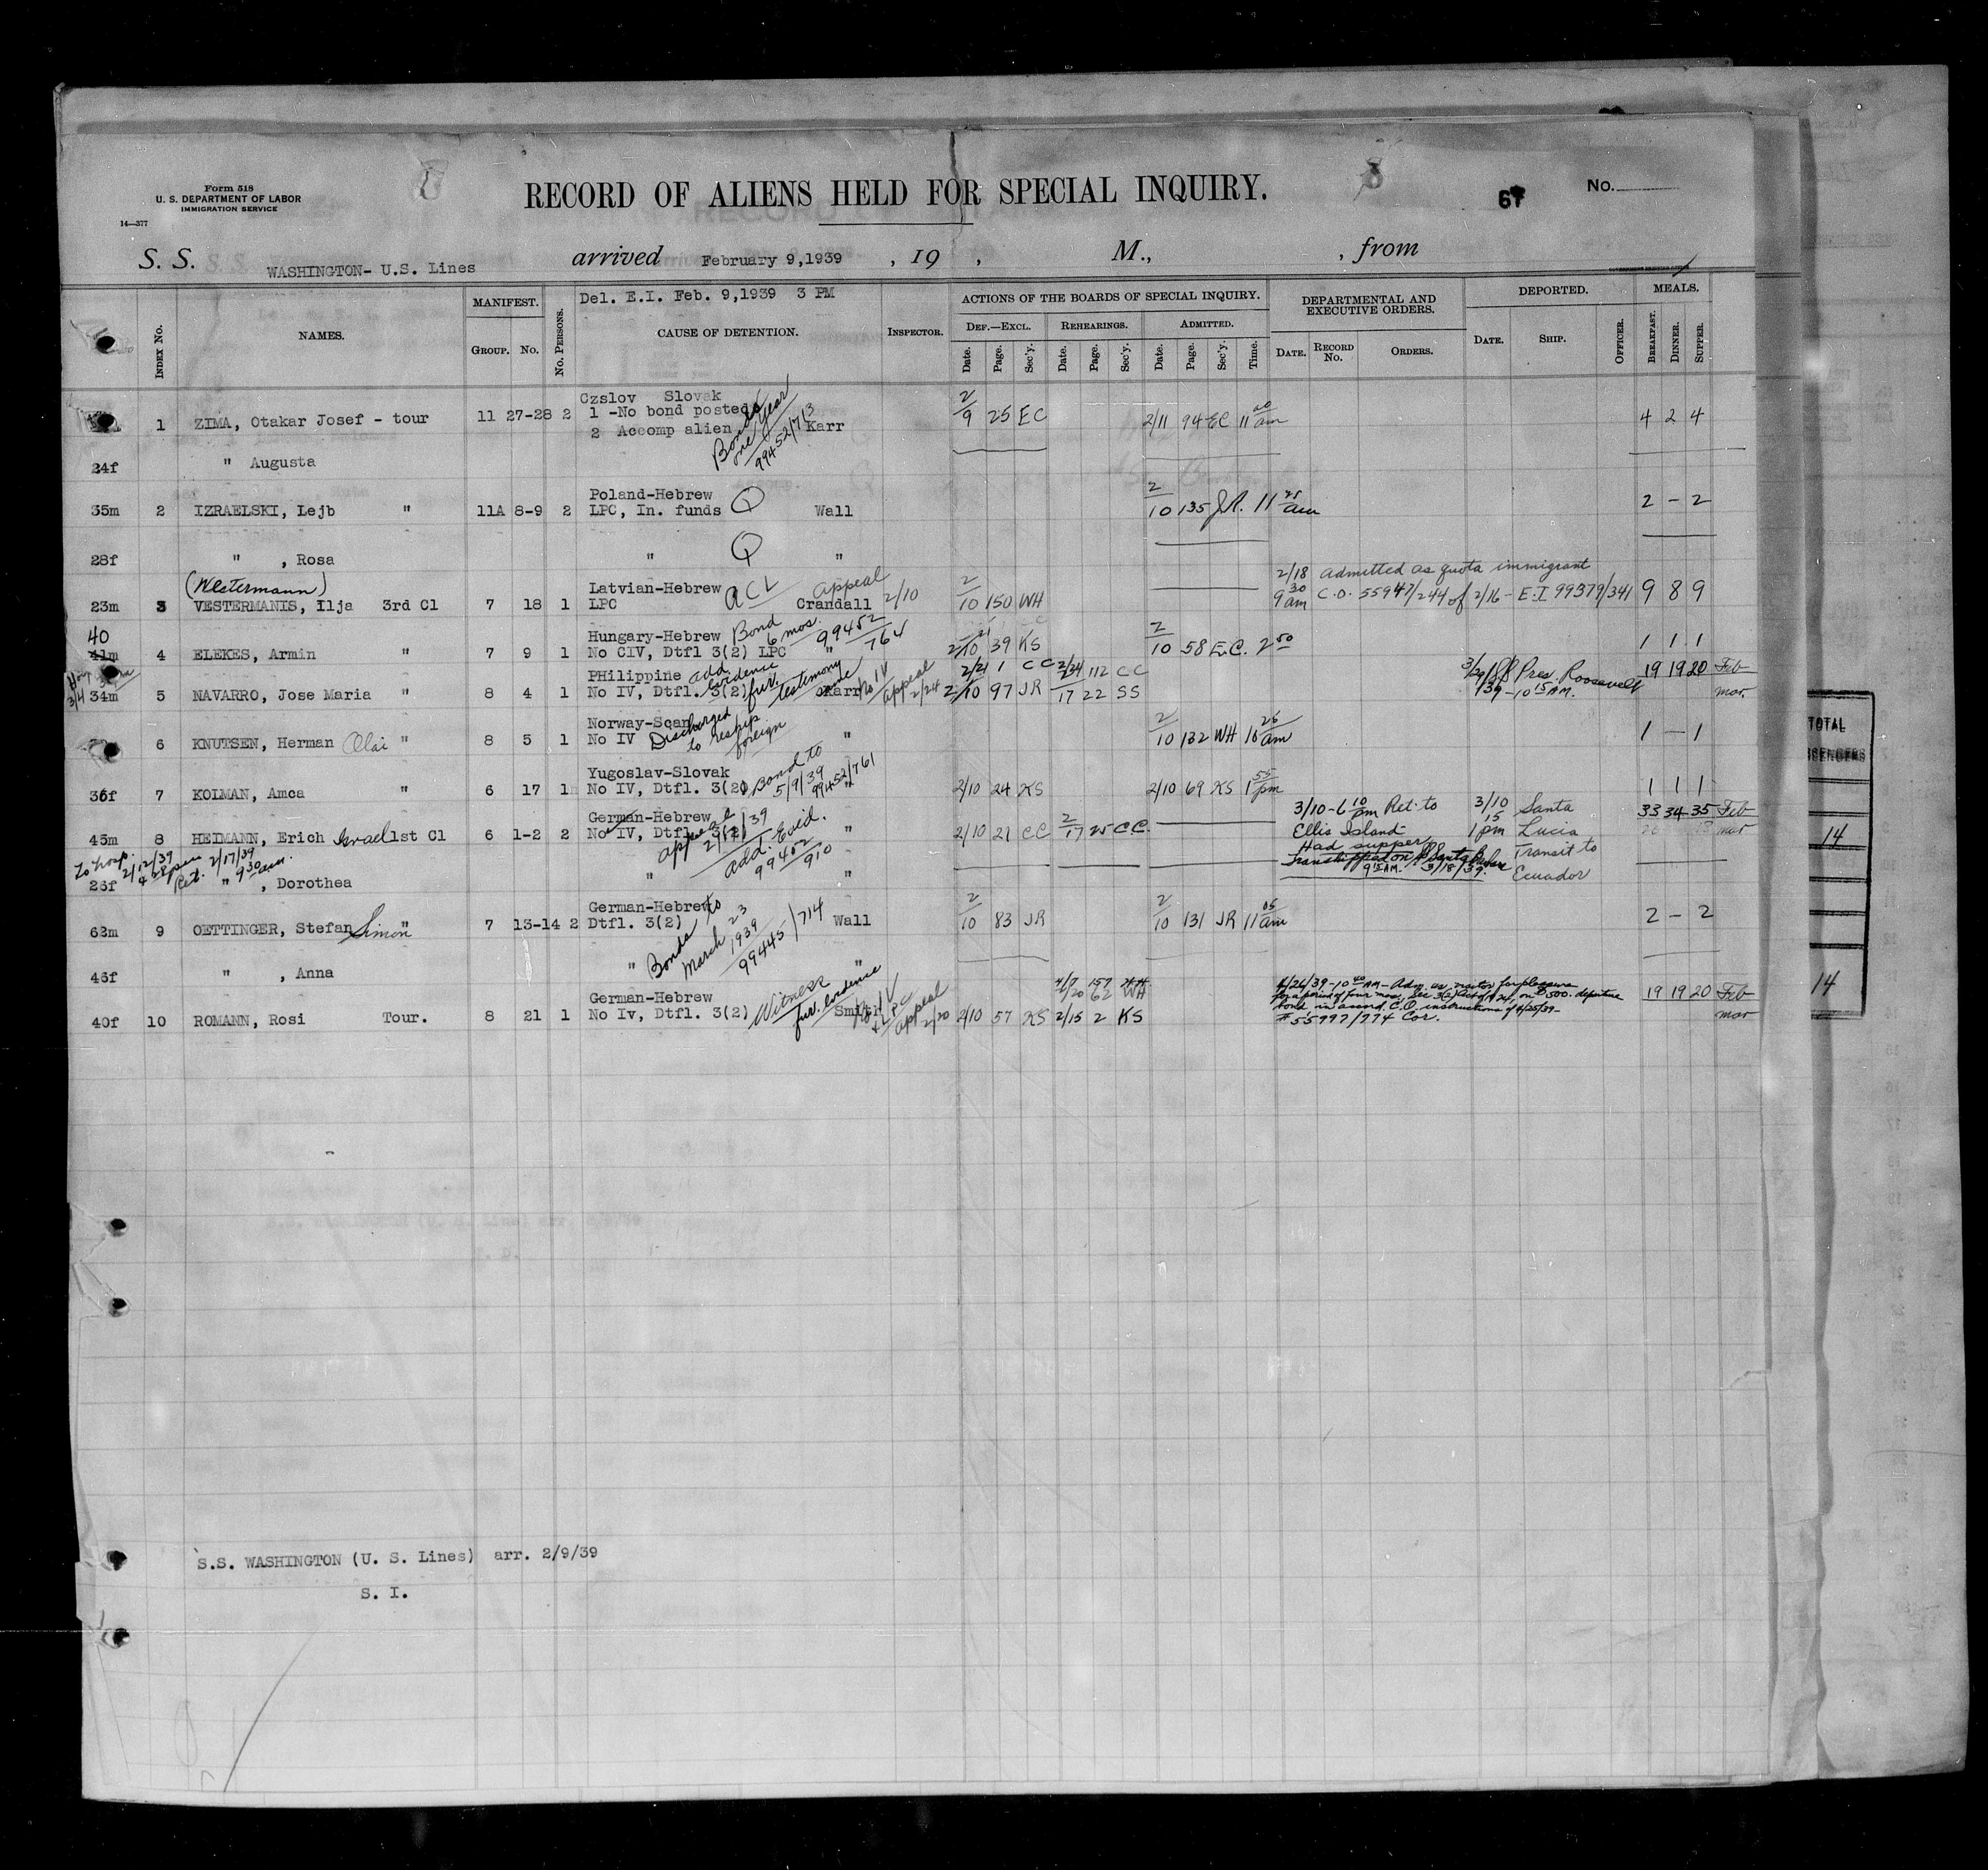 Form 518
U. S. DEPARTMENT OF LABOR
IMMIGRATION SERVICE
14—377
RECORD OF ALIENS HELD FOR SPECIAL INQUIRY.
No.
S. S. WASHINGTON- U.S. Lines arrived February 9,1939 , 19 , M., , from
Del. E.I. Feb. 9,1939 3 PM
INDEX No. NAMES. MANIFEST. GROUP. No. No. PERSONS. CAUSE OF DETENTION. INSPECTOR. ACTIONS OF THE BOARDS OF SPECIAL INQUIRY. DEPARTMENTAL AND EXECUTIVE ORDERS. DEPORTED. MEALS.
DEF.—EXCL. REHEARINGS. ADMITTED.
Date. Page. Sec'y. Date. Page. Sec'y. Date. Page. Sec'y. Time. DATE. RECORD No. ORDERS. DATE. SHIP. OFFICER. BREAKFAST. DINNER. SUPPER.
Czslov Slovak
1 ZIMA, Otakar Josef - tour 11 27-28 2 1 -No bond posted Karr 2/9 25 EC 2/11 94 EC 11 00 am 4 2 4
2 Accomp alien
Bonds one year 99452/713
24f " Augusta
Poland-Hebrew
35m 2 IZRAELSKI, Lejb " 11A 8-9 2 LPC, In. funds Q Wall 2/10 135 J.R. 11 25 am 2 — 2
28f " , Rosa " Q "
(Westermann) Latvian-Hebrew ACL Appeal 2/10
23m 3 VESTERMANIS, Ilja 3rd Cl 7 18 1 LPC Crandall 2/10 150 WH 9 8 9
2/18 9 30 am admitted as quota immigrant
C.O. 55947/244 of 2/16 - E.I 99379/341
40 Hungary-Hebrew Bond 6 mos. 99452/764
41m 4 ELEKES, Armin " 7 9 1 No CIV, Dtfl 3(2) LPC " 39 KS 2/10 58 E.C. 2 50 1 1 1
PHilippine add evidence fur. testimony
2/21 1 CC 2/24 112 CC
34m 5 NAVARRO, Jose Maria " 8 4 1 No IV, Dtfl. 3(2) Karr No IV appeal 2/24 2/10 97 JR 2/17 22 SS
SS Pres. Roosevelt 10 15 AM. 19 19 20 Feb
mar.
Norway-Scan
6 KNUTSEN, Herman Olai " 8 5 1 No IV Discharged to reship foreign " 2/10 132 WH 10 25 am 1 — 1
Yugoslav-Slovak Bond to 5/9/39 99452/761
36f 7 KOLMAN, Amca " 6 17 1 No IV, Dtfl. 3(2) " 2/10 24 KS 2/10 69 KS 1 55 pm 1 1 1
German-Hebrew
45m 8 HEIMANN, Erich Israel 1st Cl 6 1-2 2 No IV, Dtfl 3(2) " 2/10 21 CC 2/17 25 CC 33 34 35 Feb
mar
appeal 2/17/39 add. Evid. 99452/910
3/10-6 10 pm Ret. to Ellis Island
Had supper
Transhipped on SS Santa Barbara
9 15 AM. 3/18/39.
3/10 1 15 pm Santa Lucia Transit to Ecuador
To hosp. 2/12/39
Ret. 2/17/39 9 30 am.
26f " , Dorothea " "
German-Hebrew
62m 9 OETTINGER, Stefan Simon " 7 13-14 2 Dtfl. 3(2) Wall 2/10 83 JR 2/10 131 JR 11 05 am 2 — 2
Bonds to March 23 1939 99445/714
45f " , Anna " "
German-Hebrew
40f 10 ROMANN, Rosi Tour. 8 21 1 No Iv, Dtfl. 3(2) Witness fur. evidence Smith Appeal 2/20 2/10 57 KS 2/15 2 KS
4/7 157
2/20 62 WH
4/26/39-10 40 AM- Adm. as visitor for pleasure
for a period of four mos. Sec 3(2) Act of 1924, on $500. departure
bond in accord C.O. instructions of 4/25/39-
# 55997/774 Cor.
19 19 20 Feb
mar
TOTAL
PASSENGERS
14
14
S.S. WASHINGTON (U. S. Lines) arr. 2/9/39
S. I.